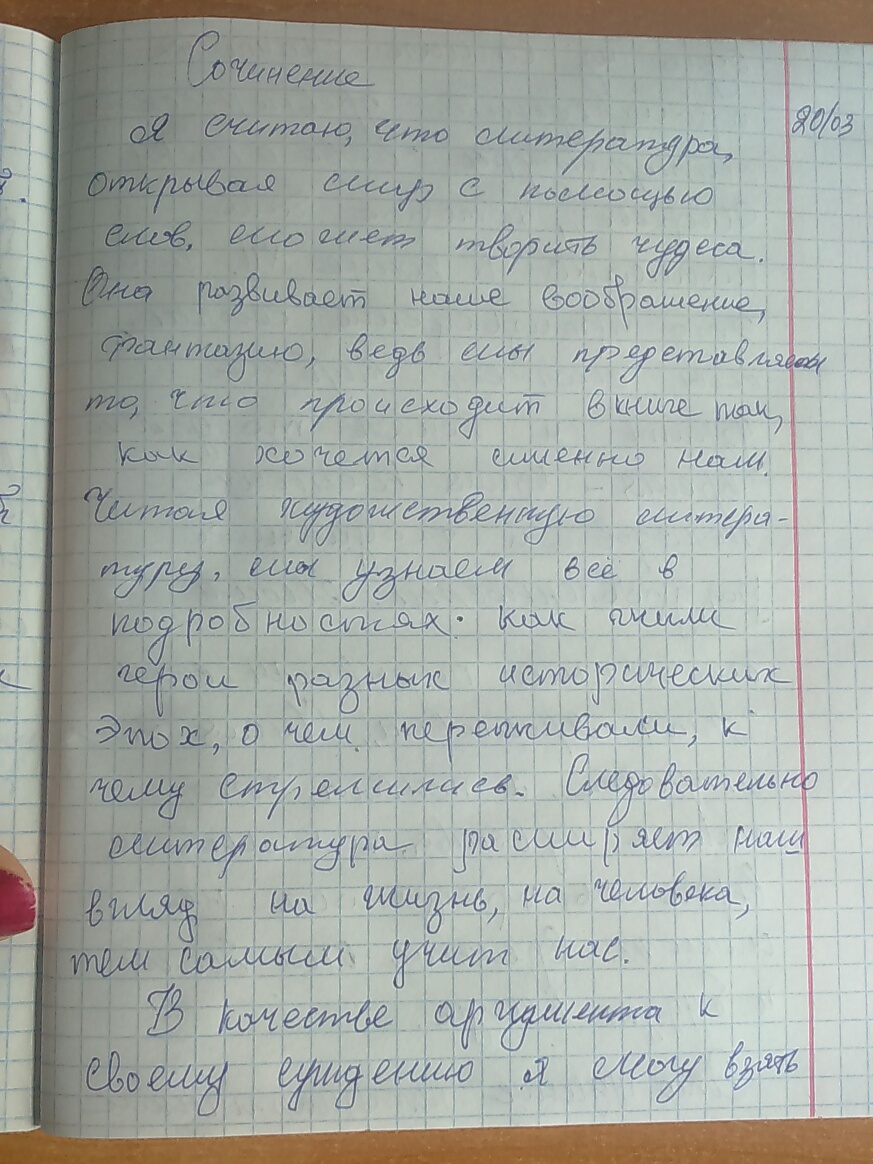 Сочинение
20/03
Я считаю, что литература,
открывая мир с помощью
слов, может творить чудеса.
Она развивает наше воображение,
фантазию, ведь мы представляем
то, что происходит в книге так,
как хочется именно нам.
Читая художественную литера-
туру, мы узнаем всё в
подробностях: как жили
герои разных исторических
эпох, о чем переживали, к
чему стремились. Следовательно
литература расширяет наш
взгляд на жизнь, на человека,
тем самым учит нас.
В качестве аргумента к
своему суждению я могу взять